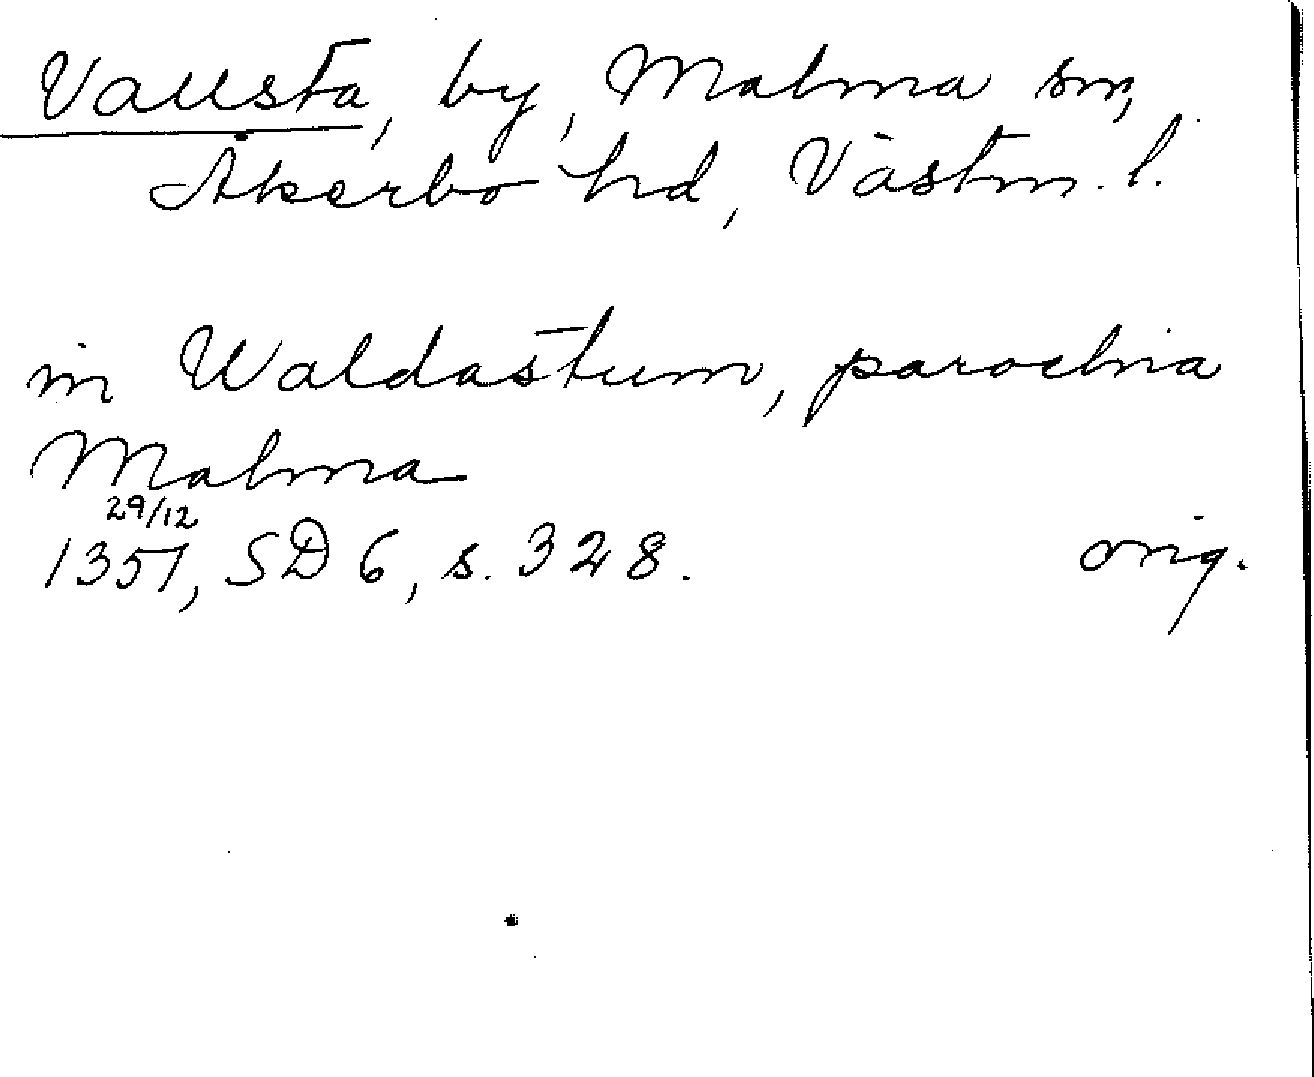 Vallsta, by, Malma sn,
Åkerbo hd, Västm. l.
in Waldastum, parochia
Malma
29/12
1351, SD 6, s. 328.
orig.